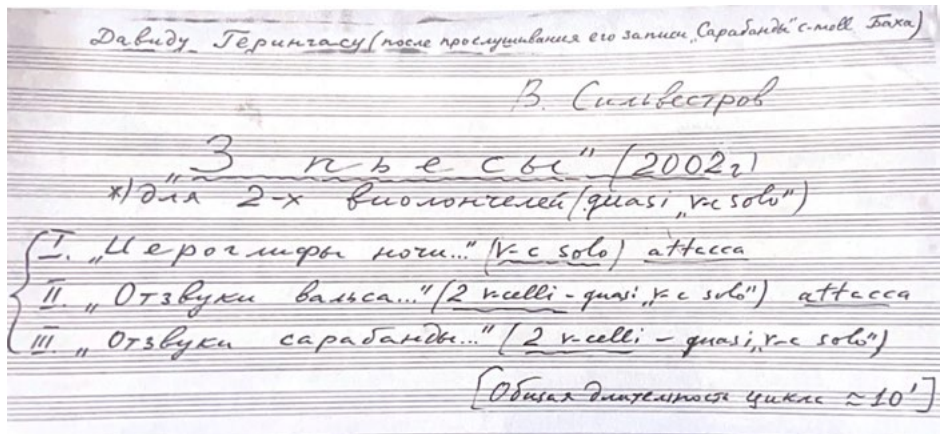 Давиду Герингасу (после прослушивания его записи „Сарабанды" c-moll Баха)
В. Сильвестров
„3 пьесы" (2002г)
*) для 2-х виолончелей (quasi „v-c solo")
I. „Иероглифы ночи..." (v-c solo) attacca
II. „Отзвуки вальса..." (2 v-celli - quasi „v-c solo") attacca
III. „Отзвуки сарабанды..." (2 v-celli - quasi „v-c solo")
[Общая длительность цикла ≈ 10']